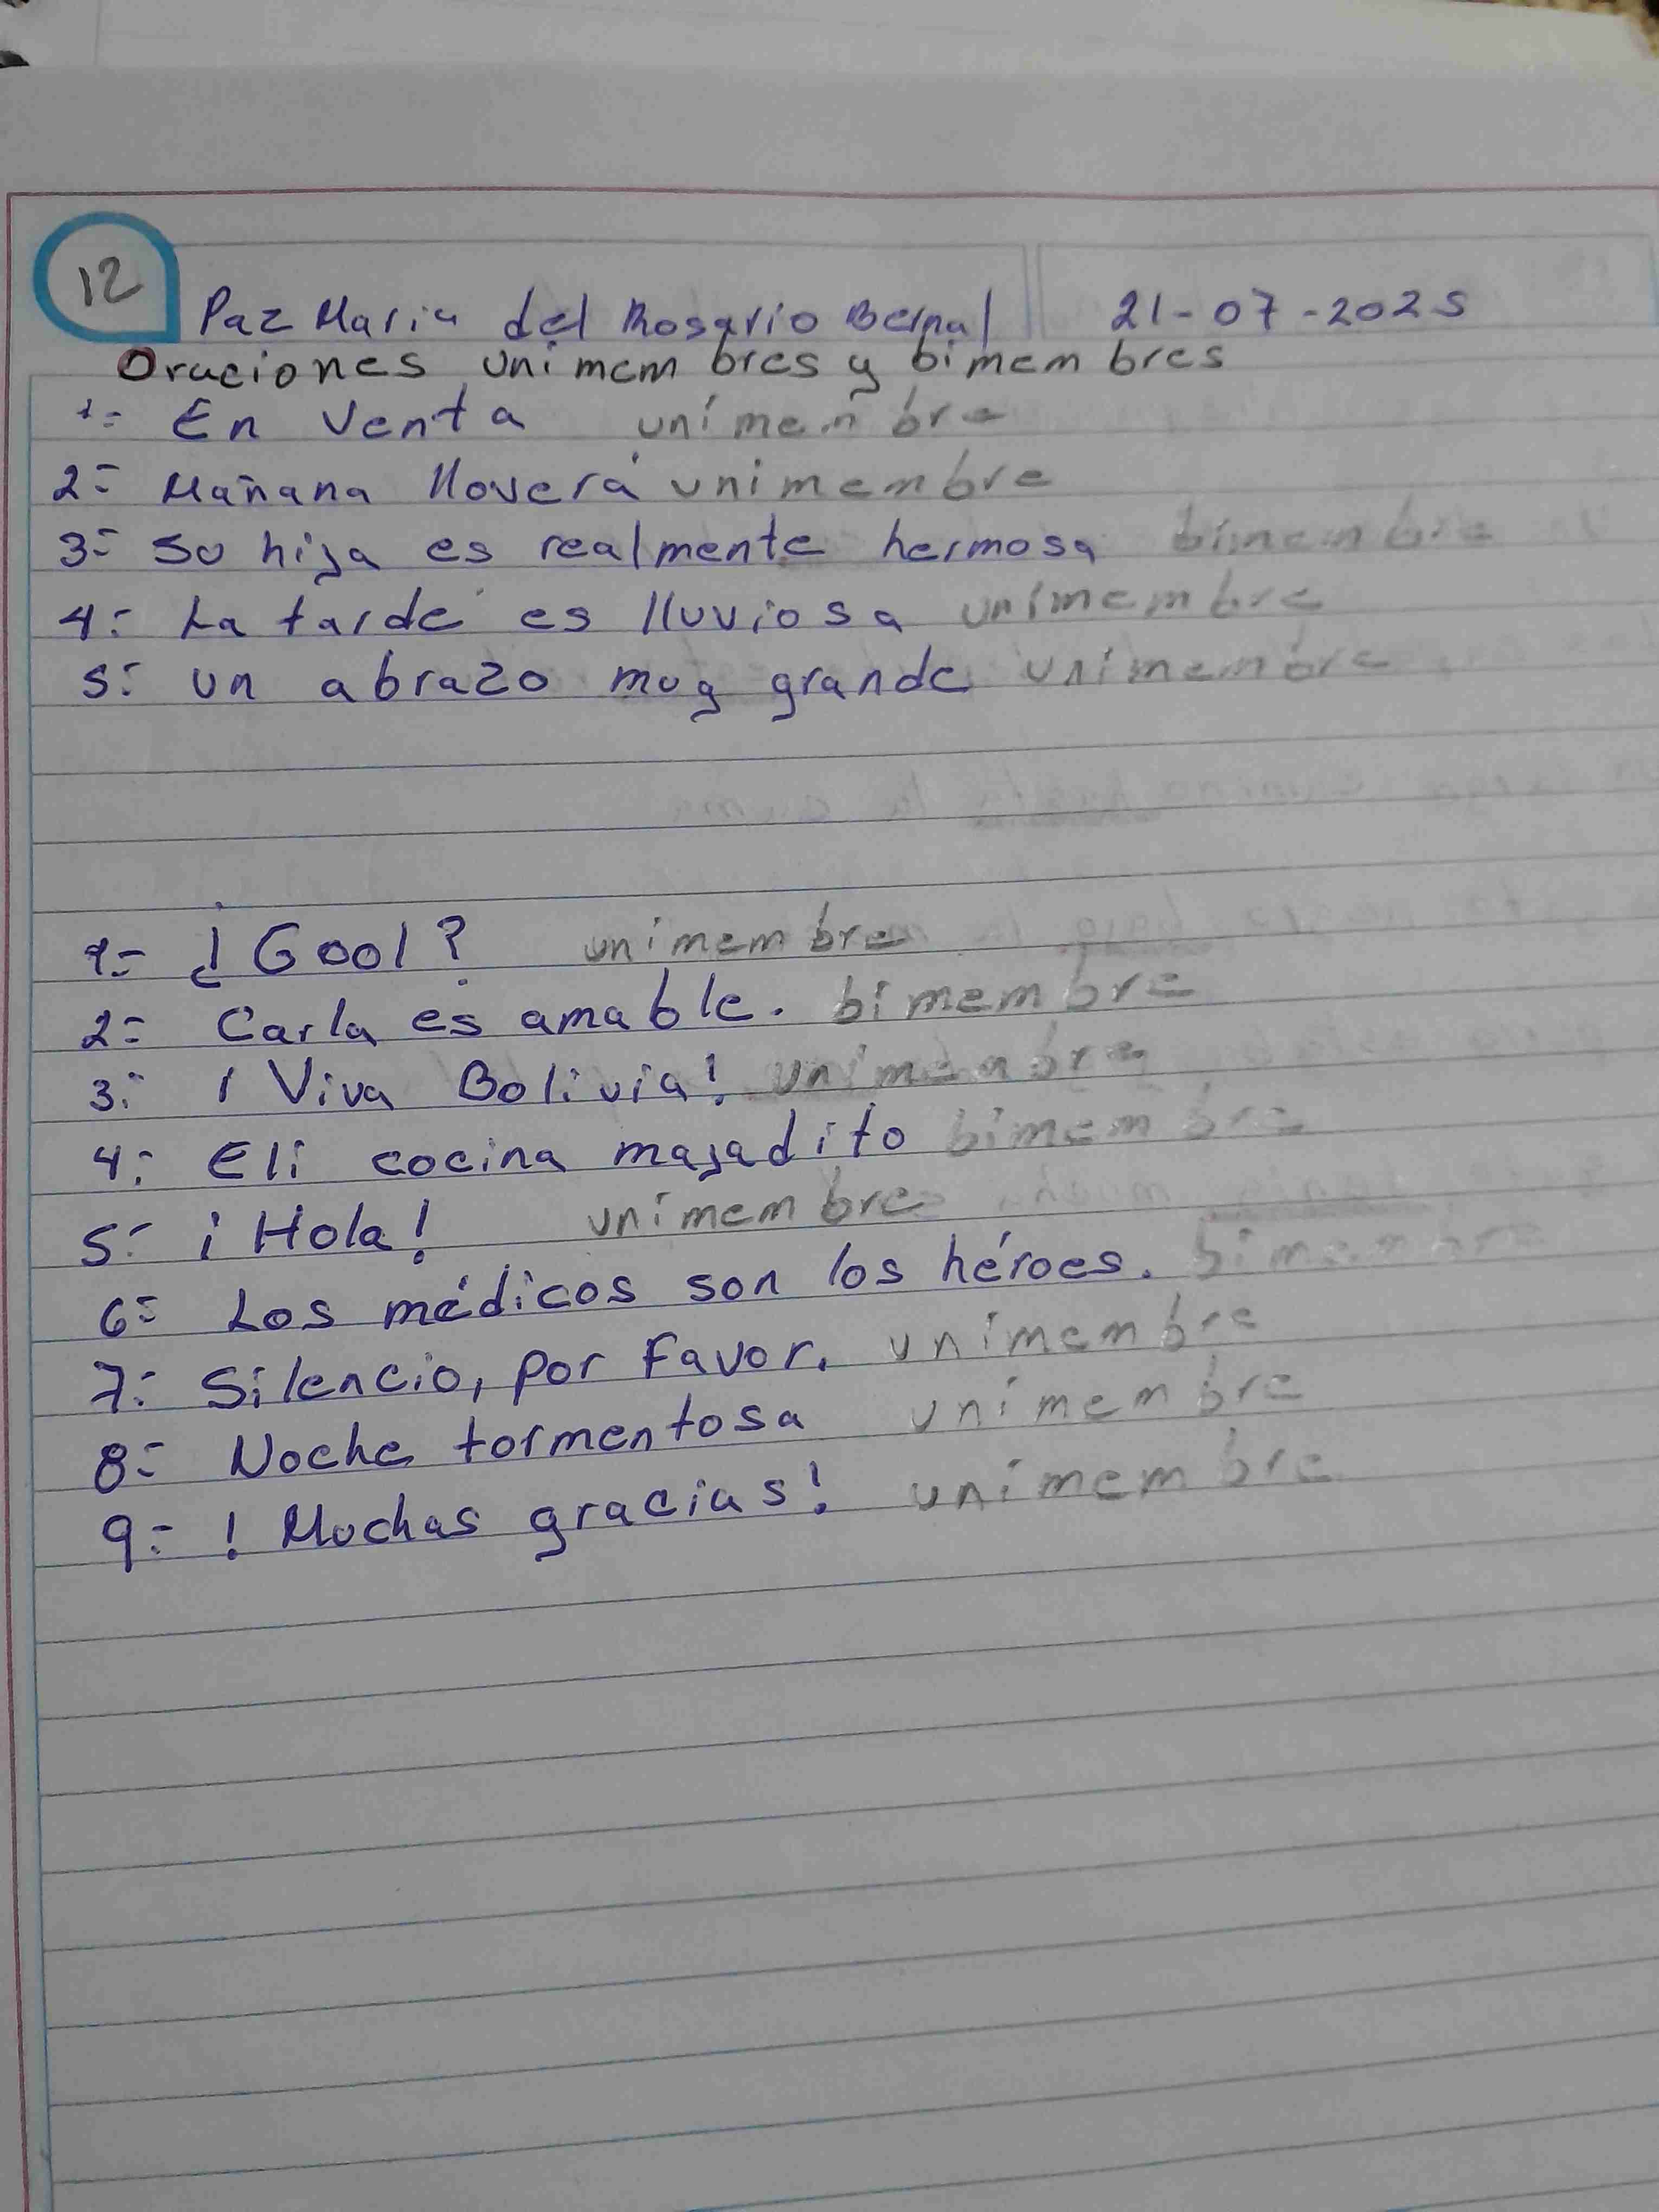 12
Paz Maria del Rosario Bernal 21-07-2025
Oraciones unimembres y bimembres
1= En Venta unimembre
2= Mañana lloverá unimembre
3= Su hija es realmente hermosa bimembre
4= La tarde es lluviosa unimembre
5= un abrazo muy grande unimembre
1= ¡Gool? unimembre
2= Carla es amable. bimembre
3= ¡Viva Bolivia! unimembre
4= Eli cocina majadito bimembre
5= ¡Hola! unimembre
6= Los médicos son los héroes. bimembre
7= Silencio, por Favor. unimembre
8= Noche tormentosa unimembre
9= ! Muchas gracias! unimembre